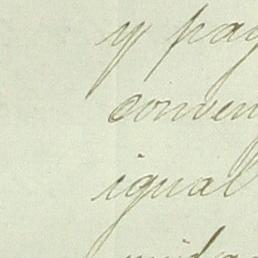 y pag
conven
igual